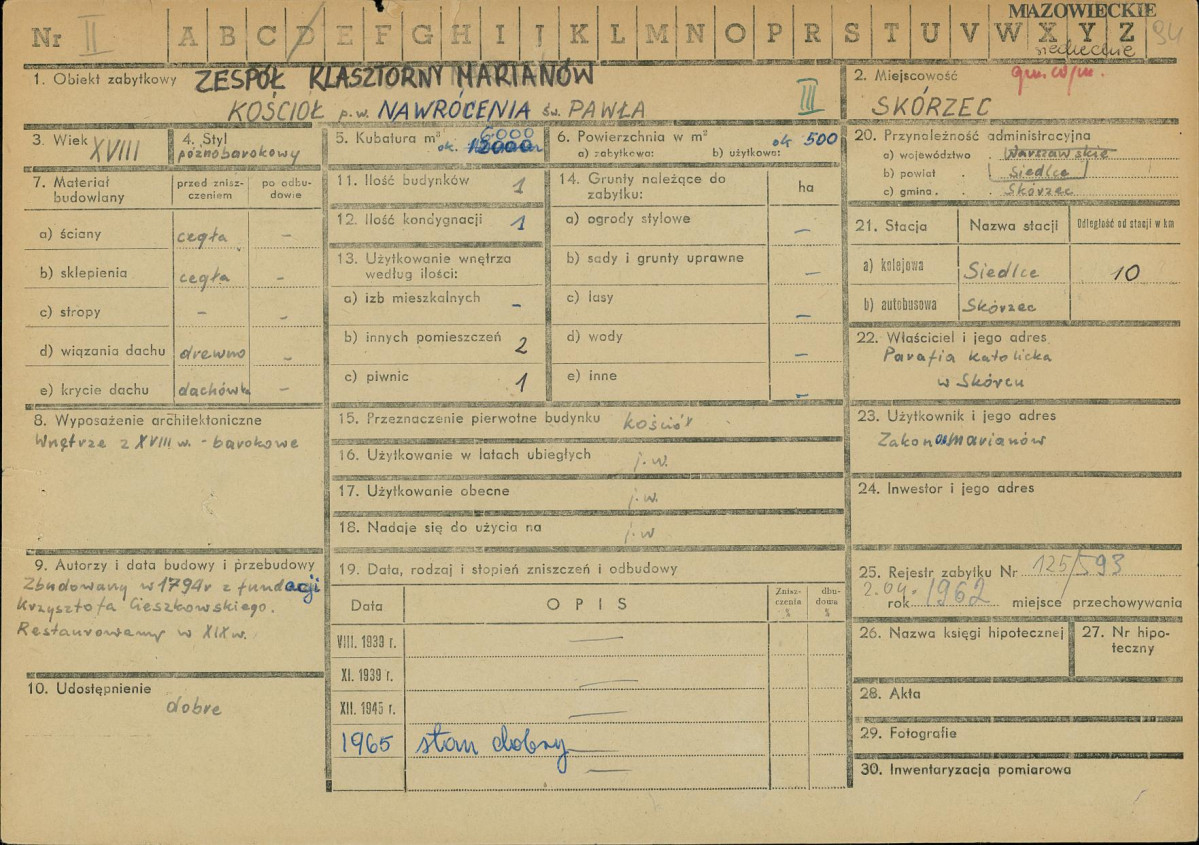 MAZOWIECKIE
Nr II A B C D E F G H I J K L M N O P R S T U V W X Y Z 94
siedleckie
1. Obiekt zabytkowy ZESPÓŁ KLASZTORNY MARIANÓW
KOŚCIOŁ p.w. NAWRÓCENIA św. PAWŁA III
2. Miejscowość gm. w/m.
SKÓRZEC
3. Wiek XVIII
4. Styl
późnobarokowy
5. Kubatura m³ 6000
ok. 12000
6. Powierzchnia w m² ok 500
a) zabytkowa: b) użytkowa:
7. Materiał budowlany
przed zniszczeniem
po odbudowie
a) ściany cegła –
b) sklepienia cegła –
c) stropy – –
d) wiązania dachu drewno –
e) krycie dachu dachówka –
8. Wyposażenie architektoniczne
Wnętrze z XVIII w. - barokowe
9. Autorzy i data budowy i przebudowy
Zbudowany w 1794r z fundacji
Krzysztofa Cieszkowskiego.
Restaurowany w XIX w.
10. Udostępnienie
dobre
11. Ilość budynków 1
12. Ilość kondygnacji 1
13. Użytkowanie wnętrza
według ilości:
a) izb mieszkalnych –
b) innych pomieszczeń 2
c) piwnic 1
14. Grunty należące do
zabytku: ha
a) ogrody stylowe –
b) sady i grunty uprawne –
c) lasy –
d) wody –
e) inne –
15. Przeznaczenie pierwotne budynku kościół
16. Użytkowanie w latach ubiegłych j.w.
17. Użytkowanie obecne j.w.
18. Nadaje się do użycia na j.w
19. Data, rodzaj i stopień zniszczeń i odbudowy
Data OPIS Zniszczenia % dbudowa %
VIII. 1939 r. —
XI. 1939 r. —
XII. 1945 r. —
1965 stan dobry —
—
20. Przynależność administracyjna
a) województwo . Warszawskie
b) powiat . Siedlce
c) gmina . . Skórzec
21. Stacja Nazwa stacji Odległość od stacji w km
a) kolejowa Siedlce 10
b) autobusowa Skórzec
22. Właściciel i jego adres
Parafia katolicka
w Skórcu
23. Użytkownik i jego adres
Zakon marianów
24. Inwestor i jego adres
25. Rejestr zabytku Nr 125/593
2.04. rok 1962 miejsce przechowywania
26. Nazwa księgi hipotecznej
27. Nr hipoteczny
28. Akta
29. Fotografie
30. Inwentaryzacja pomiarowa